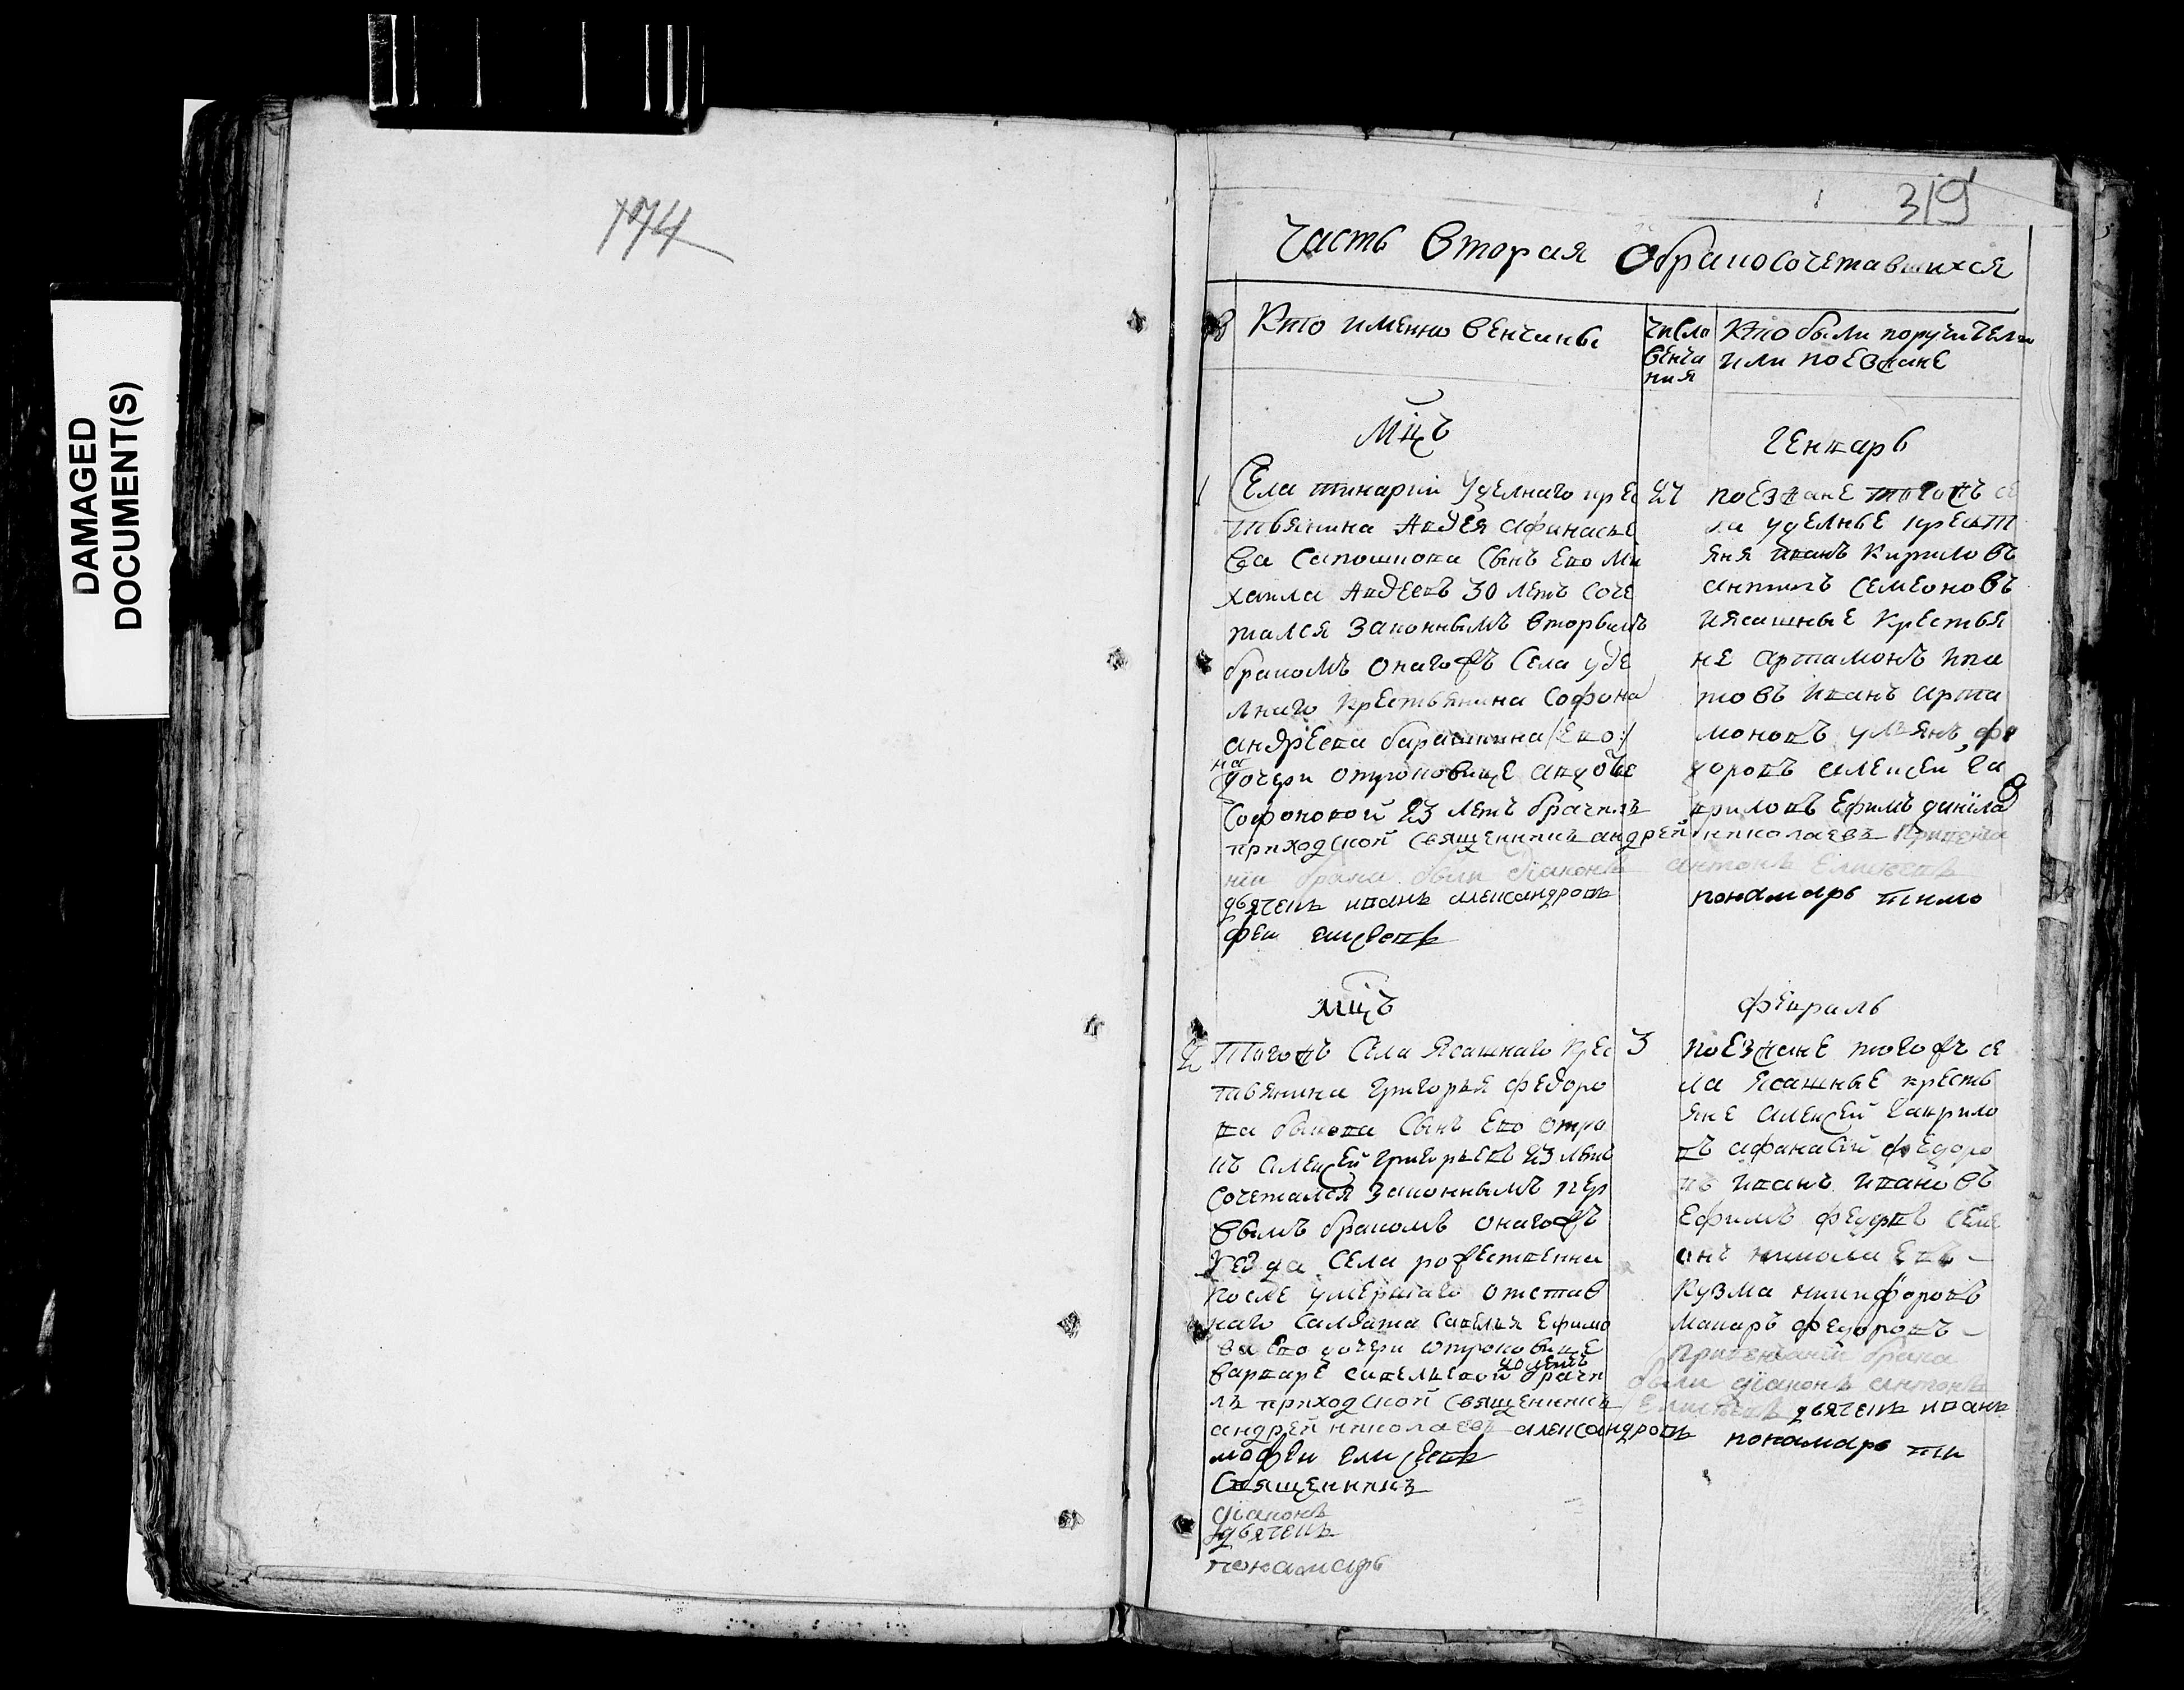 174
DAMAGED
DOCUMENT(S)
319
Часть Вторая Обракосочетавшихся
Кто имянно венчаны
число
венча
ния
Кто были поручители
или поезжане
Мцъ
Генварь
1
Села удѣлнаго крес
тьянина Авдея афинасье
ва Сапошнова Сынъ Ево Ми
хаила Авдеевъ 30 летъ Соче
тался Законнымъ Вторымъ
бракомъ онагожъ Села уде
лнаго крестьянина Софона
андреева барашкина /Ево:/
на
дочери отроковице авдотье
Софоновой 23 летъ брачилъ
приходской священникъ андрей николаевъ Привенча
нiи брака были дiаконъ антонъ Елисѣевъ
дьячекъ иванъ александровъ
понамарь тимо
феи елисеевъ
27
поезжане тогожъ се
ла уделные крест
яня иванъ Кириловъ
антипъ Семеоновъ
иясашные Крестья
не артамонъ
товъ иванъ арта
моновъ ульянъ фе
доровъ алексеи га
вриловъ Ефимъ данилов
Мцъ
Февраль
2
Тогожъ Села Ясашнаго крес
тьянина григорья федоро
ва быкова Сынъ Ево отро
къ алексей григорьевъ 23 летъ
Сочетался законнымъ пер
вымъ бракомъ онагожъ
уезда Села рожественна
после умершаго отстав
наго Салдата Савелья Ефимо
ва Ево дочери отроковице
20 летъ
варваре савельевой брачи
лъ приходской священникъ
андрей николаевъ александровъ
мофеи елисеевъ
Священникъ
дiаконъ
дьячекъ
понамарь
3
поезжане тогожъ се
ла Ясашные кресть
яне алексей гаврило
въ афанасей федоро
въ иванъ ивановъ
Ефимъ федоровъ семе
онъ николаевъ
Кузма никифоровъ
макаръ федоровъ
Привенчании брака
были дiаконъ антонъ
Елисѣевъ дьячекъ иванъ
понамарь ти